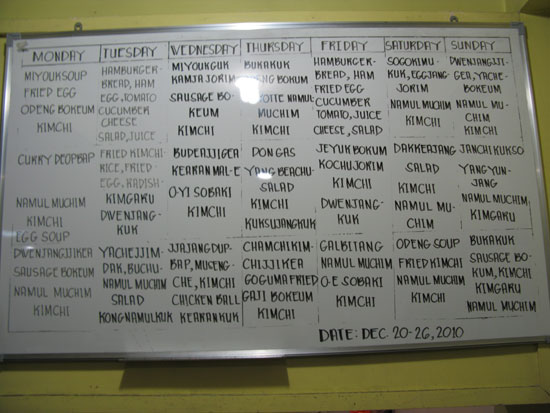 MONDAY TUESDAY WEDNESDAY THURSDAY FRIDAY SATURDAY SUNDAY
MIYOUKSOUP
FRIED EGG
ODENG BOKEUM
KIMCHI
HAMBURGER-
BREAD, HAM
EGG, TOMATO
CUCUMBER
CHEESE
SALAD, JUICE
MIYOUKGUK
KAMJA JORIM
SAUSAGE BO-
KEUM
KIMCHI
BUKAKUK
ODENG BOKUM
NAMUL
MUCHIM
KIMCHI
HAMBURGER-
BREAD, HAM
FRIED EGG
CUCUMBER
TOMATO, JUICE
CHEESE, SALAD
SOGOKIMU-
KUK, EGGJANG-
JORIM
NAMUL MUCHIM
KIMCHI
DWENJANGJI-
GEA, YACHE-
BOKEUM
NAMUL MU-
CHIM
KIMCHI
CURRY DEOPBAP
NAMUL MUCHIM
KIMCHI
EGG SOUP
FRIED KIMCHI-
RICE, FRIED-
EGG, RADISH-
KIMGAKU
DWENJANG-
KUK
BUDEAJJIGEA
KERANMAL-E
OYI SOBAKI
KIMCHI
DONGAS
YANG BEACHU-
SALAD
KIMCHI
KUKSUJANGKUK
JEYUK BOKUM
KOCHUJORIM
KIMCHI
DWENJANG-
KUK
DAKKEAJANG
SALAD
KIMCHI
NAMUL MU-
CHIM
JANCHI KUKSO
YANGYUN-
JANG
NAMUL MUCHIM
KIMGAKU
DWENJANGJJIKEA
SAUSAGE BOKEUM
NAMUL MUCHIM
KIMCHI
YACHEJJIM-
DAK, BUCHU-
NAMUL MUCHIM
SALAD
KONGNAMULKUK
JJAJANGDUP-
BAP, MUSENG-
CHE, KIMCHI
CHICKEN BALL
KERANKUK
CHAMCHIKIM-
CHIJJIKEA
GOGUMA FRIED
GAJI BOKEUM
KIMCHI
GALBITANG
NAMUL MUCHIM
O-E SOBAKI
KIMCHI
ODENG SOUP
FRIED KIMCHI
NAMUL MUCHIM
KIMCHI
BUKAKUK
SAUSAGE BO-
KUM, KIMCHI
KIMGAKU
NAMUL MUCHIM
DATE: DEC. 20-26, 2010